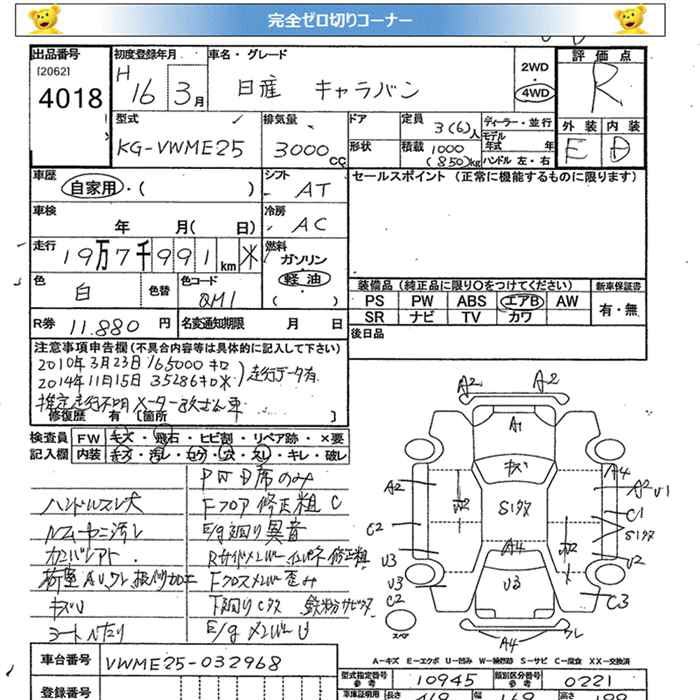 完全ゼロ切りコーナー
出品番号
[2062]
4018
初度登録年月
H 16 3月
車名・グレード
日産 キャラバン
2WD
・
4WD
評価点
R
外装 内装
E D
型式
KG-VWME25
排気量
3000cc
ドア
形状
定員 3(6)人
積載 1000(850)kg
ディーラー・並行
モデル年式 年
ハンドル 左・右
車歴
自家用・( )
シフト
AT
セールスポイント (正常に機能するものに限ります)
車検
年 月( 日)
冷房
AC
走行
19万7千991km 米
燃料
ガソリン
軽油
( )
色
白
色替
色コード
QM1
装備品 (純正品に限り○をつけてください)
新車保証書
PS PW ABS エアB AW
SR ナビ TV カワ
有・無
R券 11.880円
名変通知期限 月 日
後日品
注意事項申告欄(不具合内容等は具体的に記入して下さい)
2010年3月23日 165000キロ
2014年11月15日 35286キロ米
走行データ有
推定走行不明 メーター改ざん車
修復歴 有 [箇所 ]
検査員記入欄
FW キズ・飛石・ヒビ割・リペア跡・×要
内装 キズ・汚レ・コゲ・穴・スレ・キレ・破レ
PW D席のみ
ハンドルスレ大
Fフロア修正粗 C
ルームヤニ汚レ
E/g廻り異音
Fクロスメンバー歪み
キズU
下廻りCタタ 鉄粉サビタタ
シートヘタリ
E/gメンバーU
A2 A2
A1
キズ
A4
A2
A2 U1
C2
S1タタ
C1
S1タタ
A4
U3
U2
U3
U3
C2
C3
スペア
A4
ワレ
A-キズ E-エクボ U-凹み W-補修跡 S-サビ C-腐食 XX-交換済
車台番号
VWME25-032968
登録番号
型式指定番号
参考
10945
類別区分番号
参考
0221
車庫証明用
長さ
幅
高さ